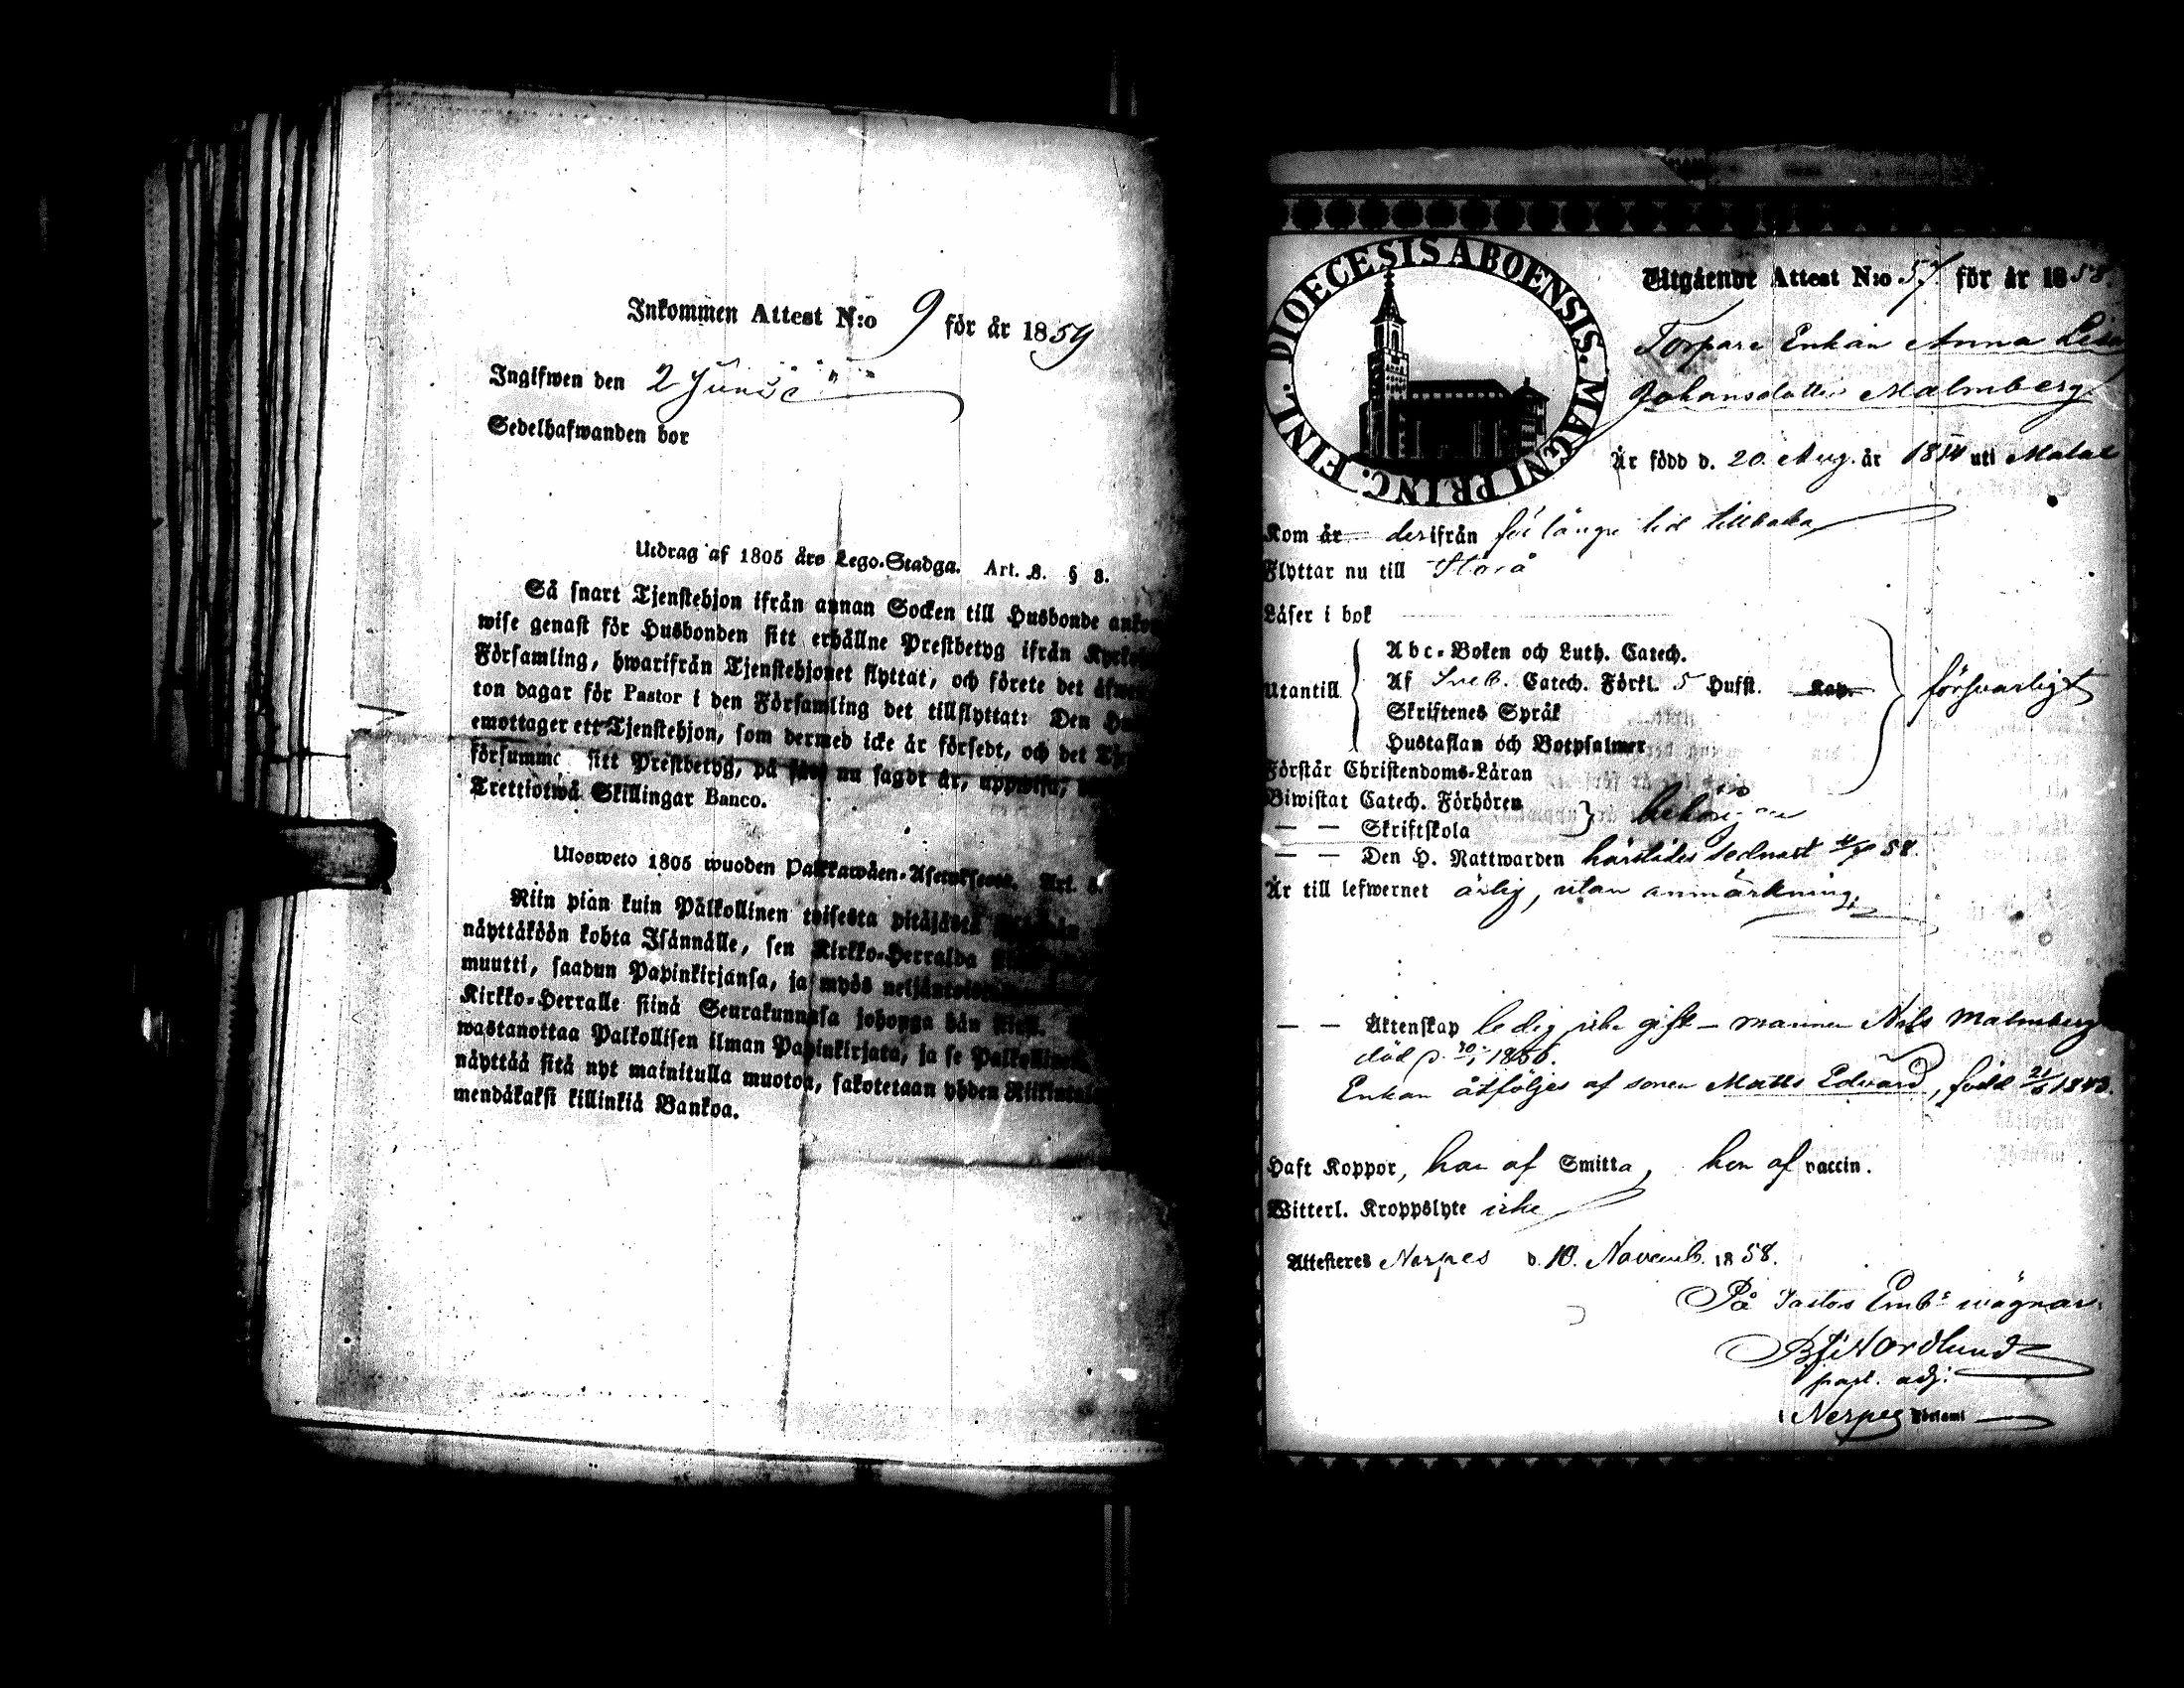 Inkommen Attest N:o 9 för år 1859
Ingifwen den 2 Junii
Sedelhafwanden bor
Utdrag af 1805 års Lego-Stadga. Art. 8. § 8.
Så snart Tjenstehjon ifrån annan Socken till Husbonde
wise genast för Husbonden sitt erhållne Prestbetyg ifrån
Församling, hwarifrån Tjenstehjonet flyttat, och förete det
ton dagar för Pastor i den Församling det tillflyttat: Den
emottager ett Tjenstehjon, som dermed icke är försedt, och det
försumme sitt Prestbetyg, på sätt nu sagdt är, uppwisa,
Trettiotwå Skillingar Banco.
Ulosweto 1805 wuoden Palkkawäen-Asetuksesta. Art.
Niin pian kuin Palkollinen toisesta pitäjästä
näyttäköön kohta Isännälle, sen Kirkko-Herralda
muutti, saadun Papinkirjansa, ja myös
Kirkko-Herralle siinä Seurakunnasa johonga hän
wastanottaa Palkollisen ilman Papinkirjata, ja se
näyttää sitä nyt mainitulla muotoa, sakotetaan yhden
mendäkaksi killinkiä Bankoa.
DIOECESIS ABOENSIS. MAGNI PRINC. FINL.
Utgående Attest N:o 57. för år 1858.
Torpare Enkan Anna Lisa
Johansdotter Malmberg
Är född d. 20. Aug. år 1814 uti Malax
Kom år derifrån för längre tid tillbaka
Flyttar nu till Storå
Läser i bok
Abc-Boken och Luth. Catech.
Utantill Af Sveb. Catech. Förkl. 5 Hufst. Kap. försvarligt
Skriftenes Språk
Hustaflan och Botpsalmer
Förstår Christendoms-Läran
Biwistat Catech. Förhören
— — Skriftskola
— — Den H. Nattwarden härstädes sednast 58.
Är till lefwernet ärlig, utan anmärkning.
— — Äktenskap ledig icke gift — mannen Nils Malmberg
död d. 1856.
Enkan åtföljes af sonen Matts Edvard, född
Haft Koppor, har af Smitta, hon af vaccin.
Witterl. Kroppslyte icke
Attesteres Nerpes d. 10. Novemb. 1858.
På Pastors Emb:s wägnar
Nordlund
past. adj.
i Nerpes